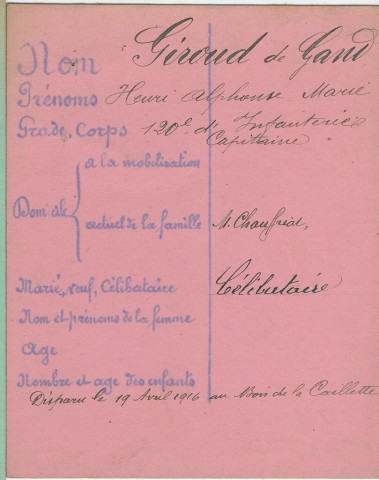 Nom Giroud de Gand
Prénoms Henri Alphonse Marie
Grade, Corps 120e d'Infanterie
Capitaine
à la mobilisation
Domicile
actuel de la famille M. Chauffriat,
Marié, veuf, Célibataire Célibataire
Nom et prénoms de la femme
Age
Nombre et age des enfants
Disparu le 19 Avril 1916 au Bois de la Caillette